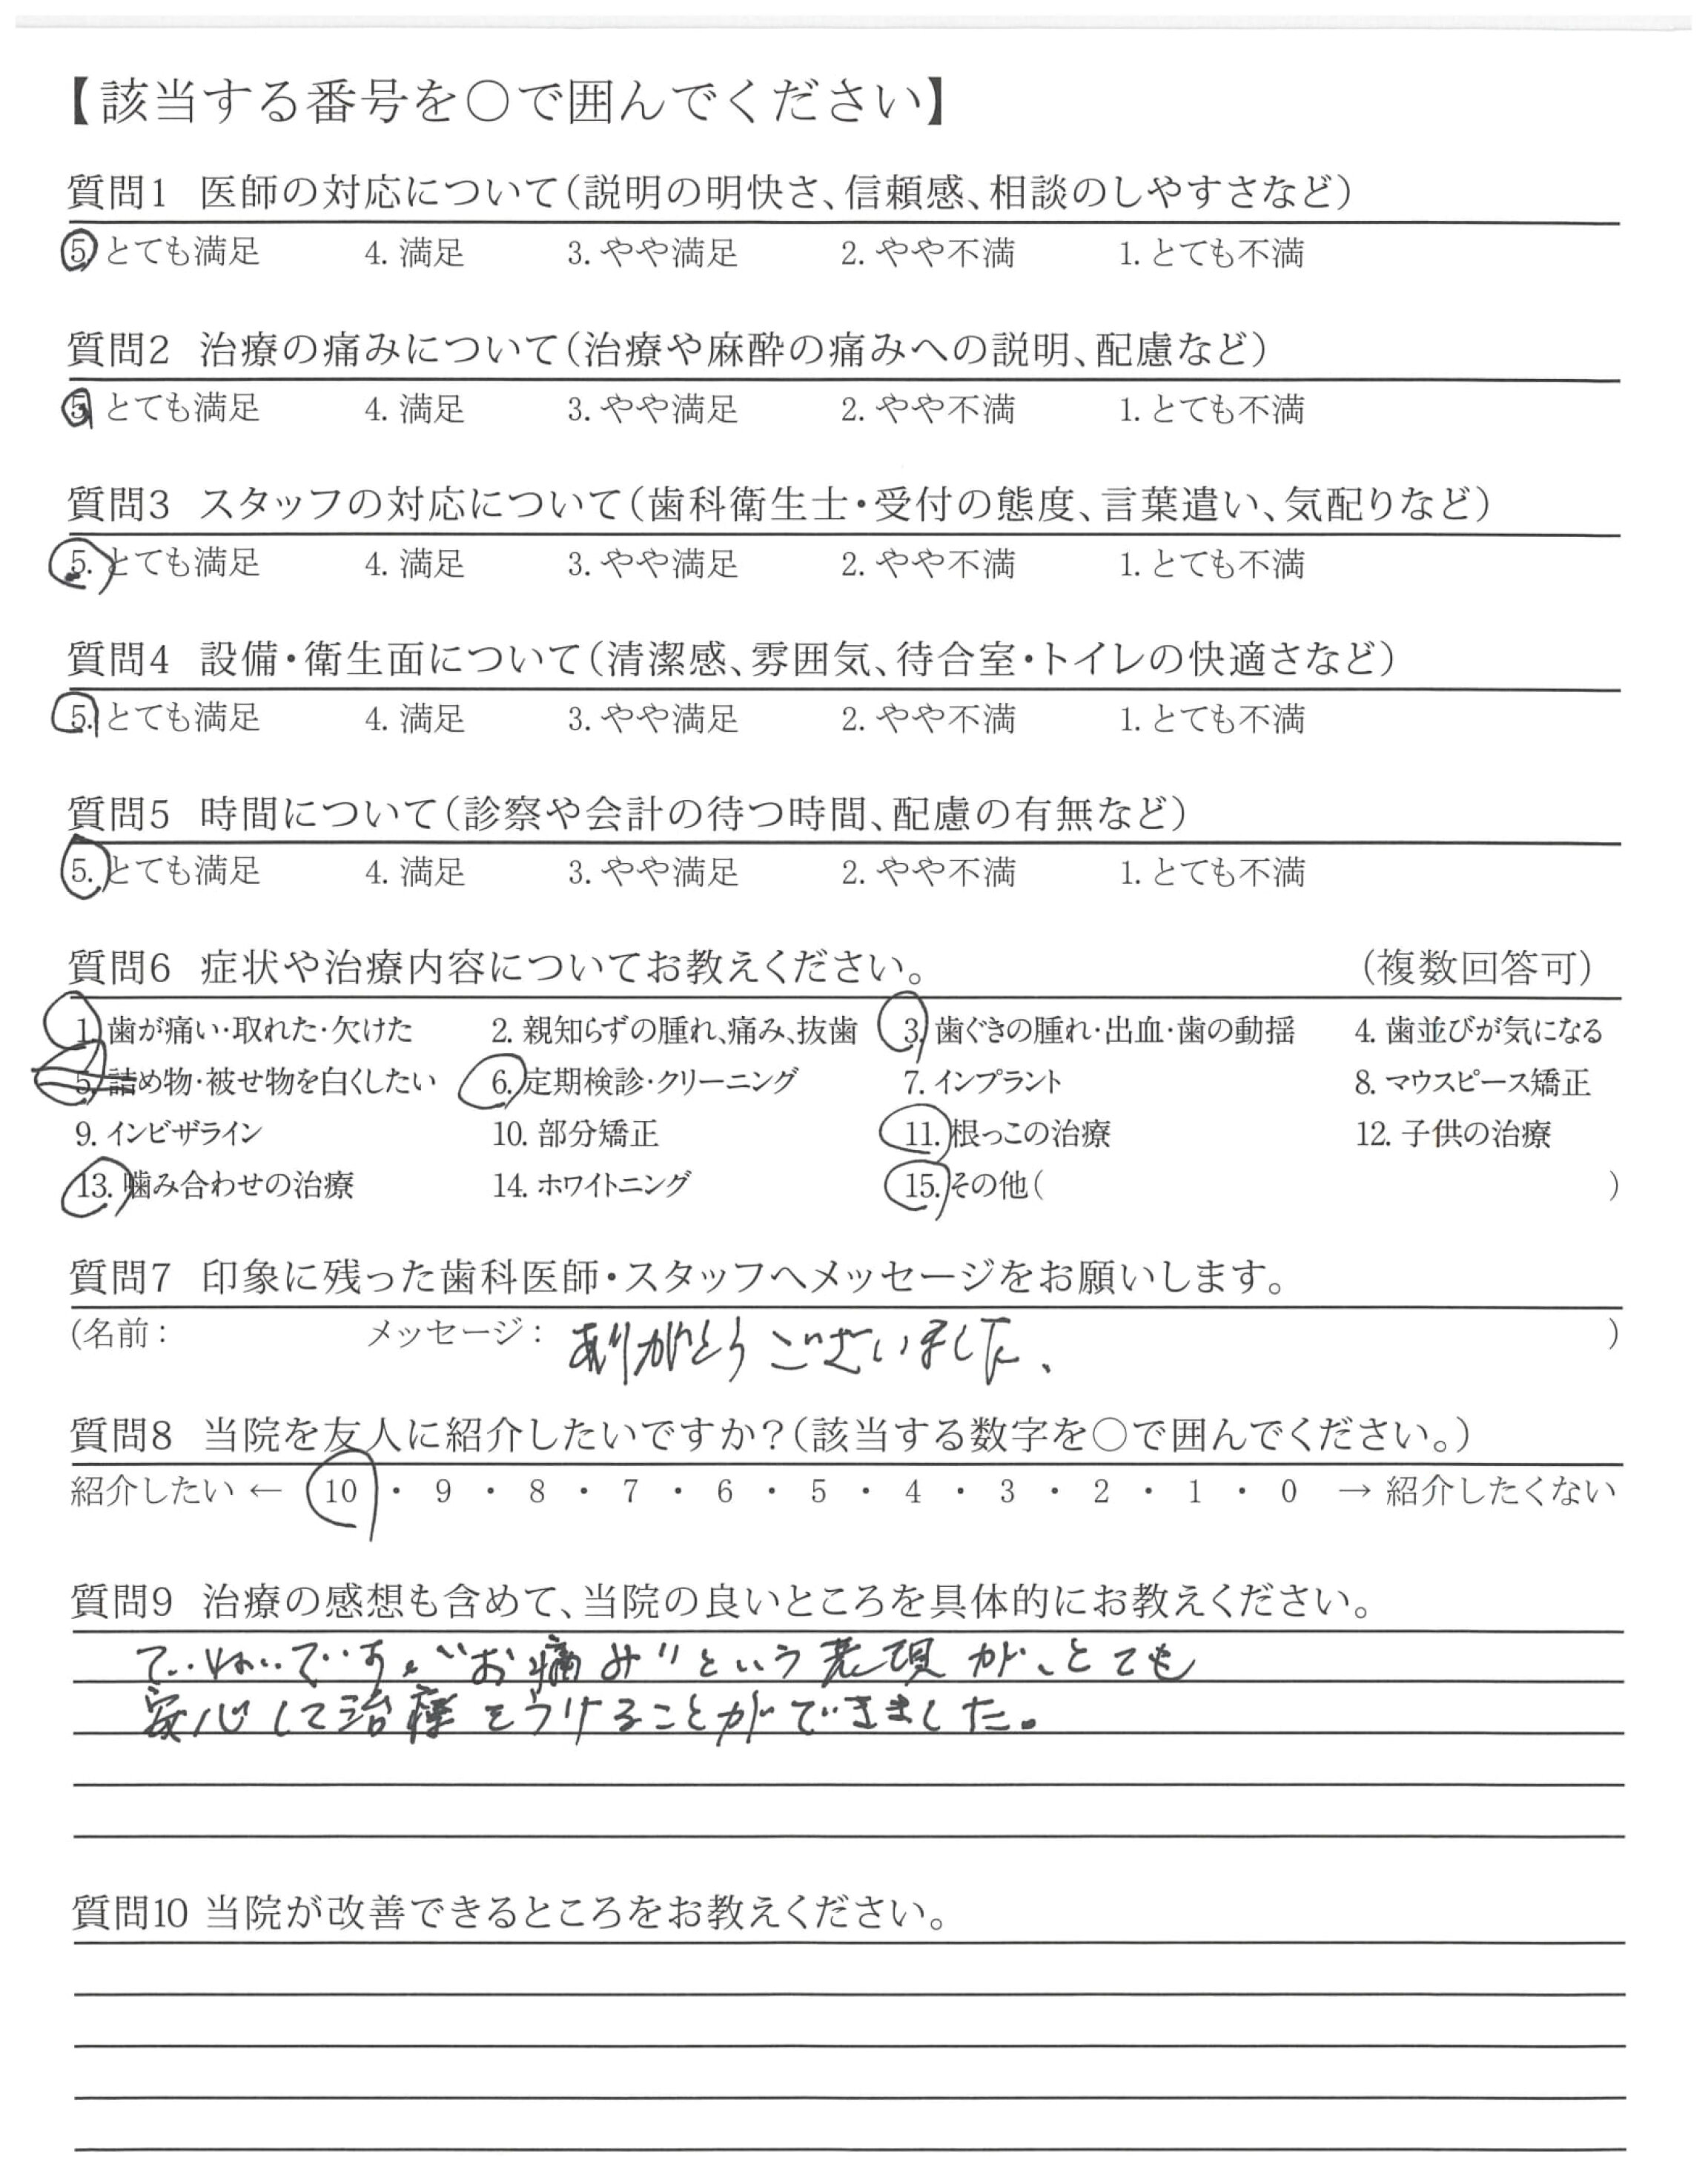 【該当する番号を○で囲んでください】
質問1 医師の対応について(説明の明快さ、信頼感、相談のしやすさなど)
5. とても満足 4. 満足 3. やや満足 2. やや不満 1. とても不満
質問2 治療の痛みについて(治療や麻酔の痛みへの説明、配慮など)
5. とても満足 4. 満足 3. やや満足 2. やや不満 1. とても不満
質問3 スタッフの対応について(歯科衛生士・受付の態度、言葉遣い、気配りなど)
5. とても満足 4. 満足 3. やや満足 2. やや不満 1. とても不満
質問4 設備・衛生面について(清潔感、雰囲気、待合室・トイレの快適さなど)
5. とても満足 4. 満足 3. やや満足 2. やや不満 1. とても不満
質問5 時間について(診察や会計の待つ時間、配慮の有無など)
5. とても満足 4. 満足 3. やや満足 2. やや不満 1. とても不満
質問6 症状や治療内容についてお教えください。 (複数回答可)
1. 歯が痛い・取れた・欠けた 2. 親知らずの腫れ、痛み、抜歯 3. 歯ぐきの腫れ・出血・歯の動揺 4. 歯並びが気になる
5. 詰め物・被せ物を白くしたい 6. 定期検診・クリーニング 7. インプラント 8. マウスピース矯正
9. インビザライン 10. 部分矯正 11. 根っこの治療 12. 子供の治療
13. 噛み合わせの治療 14. ホワイトニング 15. その他( )
質問7 印象に残った歯科医師・スタッフへメッセージをお願いします。
(名前: メッセージ: ありがとうございました、 )
質問8 当院を友人に紹介したいですか?(該当する数字を○で囲んでください。)
紹介したい ← 10 ・ 9 ・ 8 ・ 7 ・ 6 ・ 5 ・ 4 ・ 3 ・ 2 ・ 1 ・ 0 → 紹介したくない
質問9 治療の感想も含めて、当院の良いところを具体的にお教えください。
ていねいです。“お痛み”という表現が、とても
安心して治療をうけることができました。
質問10 当院が改善できるところをお教えください。